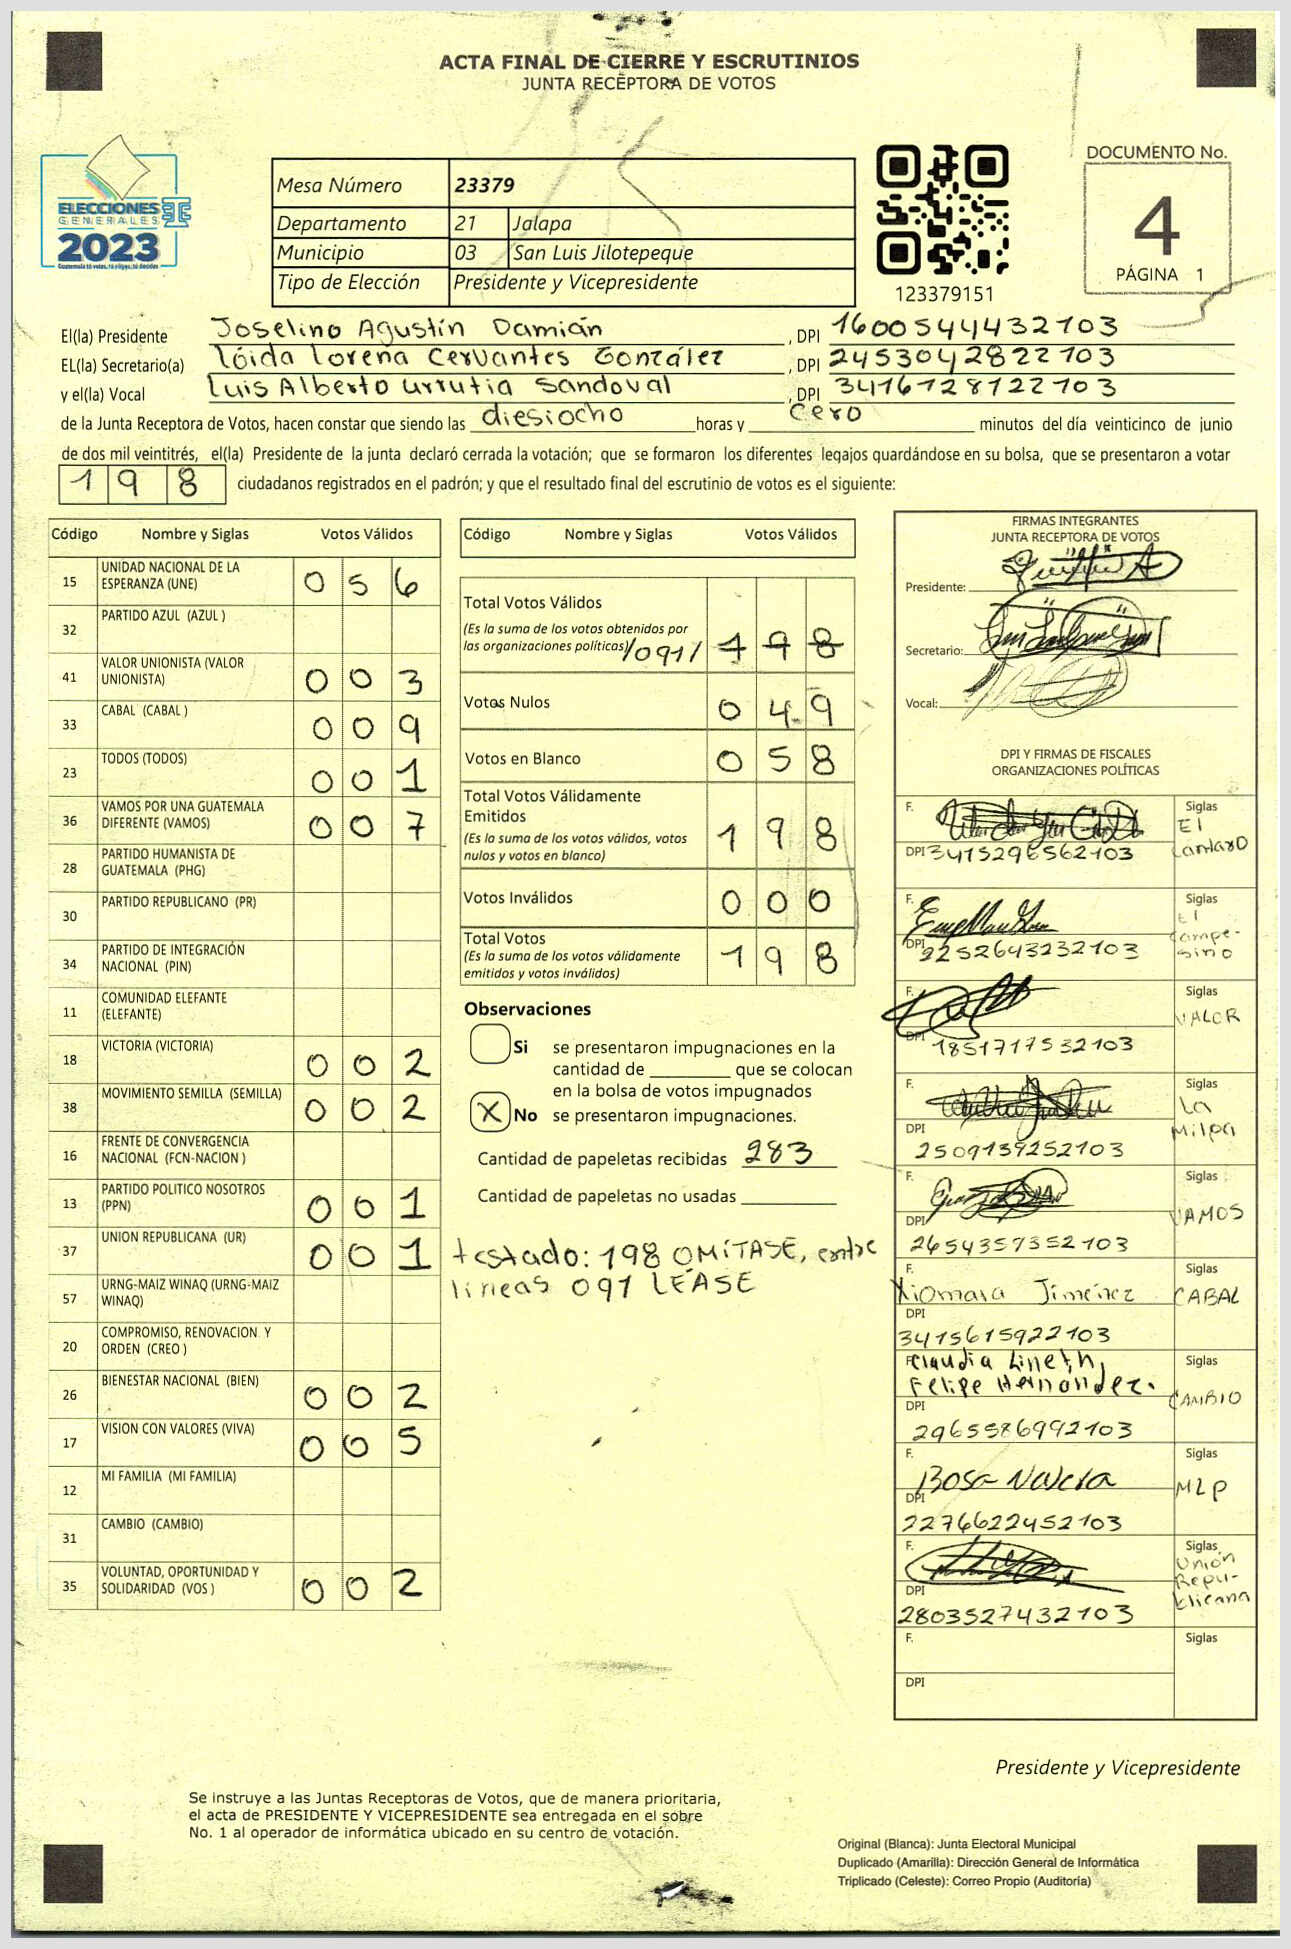 ACTA FINAL DE CIERRE Y ESCRUTINIOS
JUNTA RECEPTORA DE VOTOS
ELECCIONES
GENERALES
2023
Guatemala tú votas, tú eliges, tú decides
Mesa Número 23379
Departamento 21 Jalapa
Municipio 03 San Luis Jilotepeque
Tipo de Elección Presidente y Vicepresidente
123379151
DOCUMENTO No.
4
PÁGINA 1
El(la) Presidente Joselino Agustín Damián , DPI 1600544432103
EL(la) Secretario(a) Lóida Lorena Cervantes González , DPI 2453042822103
y el(la) Vocal Luis Alberto Urrutia Sandoval , DPI 3416128122103
de la Junta Receptora de Votos, hacen constar que siendo las diesiocho horas y cero minutos del día veinticinco de junio
de dos mil veintitrés, el(la) Presidente de la junta declaró cerrada la votación; que se formaron los diferentes legajos guardándose en su bolsa, que se presentaron a votar
198 ciudadanos registrados en el padrón; y que el resultado final del escrutinio de votos es el siguiente:
Código Nombre y Siglas Votos Válidos
15 UNIDAD NACIONAL DE LA
ESPERANZA (UNE) 056
32 PARTIDO AZUL (AZUL )
41 VALOR UNIONISTA (VALOR
UNIONISTA) 003
33 CABAL (CABAL ) 009
23 TODOS (TODOS) 001
36 VAMOS POR UNA GUATEMALA
DIFERENTE (VAMOS) 007
28 PARTIDO HUMANISTA DE
GUATEMALA (PHG)
30 PARTIDO REPUBLICANO (PR)
34 PARTIDO DE INTEGRACIÓN
NACIONAL (PIN)
11 COMUNIDAD ELEFANTE
(ELEFANTE)
18 VICTORIA (VICTORIA) 002
38 MOVIMIENTO SEMILLA (SEMILLA) 002
16 FRENTE DE CONVERGENCIA
NACIONAL (FCN-NACION )
13 PARTIDO POLITICO NOSOTROS
(PPN) 001
37 UNION REPUBLICANA (UR) 001
57 URNG-MAIZ WINAQ (URNG-MAIZ
WINAQ)
20 COMPROMISO, RENOVACION Y
ORDEN (CREO )
26 BIENESTAR NACIONAL (BIEN) 002
17 VISION CON VALORES (VIVA) 005
12 MI FAMILIA (MI FAMILIA)
31 CAMBIO (CAMBIO)
35 VOLUNTAD, OPORTUNIDAD Y
SOLIDARIDAD (VOS ) 002
Código Nombre y Siglas Votos Válidos
Total Votos Válidos
(Es la suma de los votos obtenidos por
las organizaciones políticas) /091/ 198
Votos Nulos 049
Votos en Blanco 058
Total Votos Válidamente
Emitidos
(Es la suma de los votos válidos, votos
nulos y votos en blanco) 198
Votos Inválidos 000
Total Votos
(Es la suma de los votos válidamente
emitidos y votos inválidos) 198
Observaciones
Si se presentaron impugnaciones en la
cantidad de ________ que se colocan
en la bolsa de votos impugnados
X No se presentaron impugnaciones.
Cantidad de papeletas recibidas 283
Cantidad de papeletas no usadas
testado: 198 OMÍTASE, entre
lineas 091 LÉASE
FIRMAS INTEGRANTES
JUNTA RECEPTORA DE VOTOS
Presidente:
Secretario:
Vocal:
DPI Y FIRMAS DE FISCALES
ORGANIZACIONES POLÍTICAS
F. Siglas
El
Cantaro
DPI 3415296562103
F. Siglas
El
Campe-
sino
DPI 2252643232103
F. Siglas
VALOR
DPI 1851717532103
F. Siglas
La
Milpa
DPI 2509139252103
F. Siglas
VAMOS
DPI 2654359352103
F. Siglas
Xiomara Jiménez CABAL
DPI
3415615922103
F. Claudia Lineth, Siglas
Felipe Hernández. CAMBIO
DPI
2965586992103
F. Siglas
Rosa Navera MLP
DPI
2276622452103
F. Siglas
Unión
Repu-
blicana
DPI
2803527432103
F. Siglas
DPI
Presidente y Vicepresidente
Se instruye a las Juntas Receptoras de Votos, que de manera prioritaria,
el acta de PRESIDENTE Y VICEPRESIDENTE sea entregada en el sobre
No. 1 al operador de informática ubicado en su centro de votación.
Original (Blanca): Junta Electoral Municipal
Duplicado (Amarilla): Dirección General de Informática
Triplicado (Celeste): Correo Propio (Auditoría)